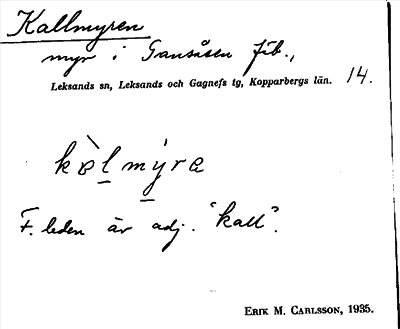 Kallmyren
myr i Gansåsen fäb.,
Leksands sn, Leksands och Gagnefs tg, Kopparbergs län. 14.
kàl mýra
F. leden är adj. "kall".
ERIK M. CARLSSON, 1935.